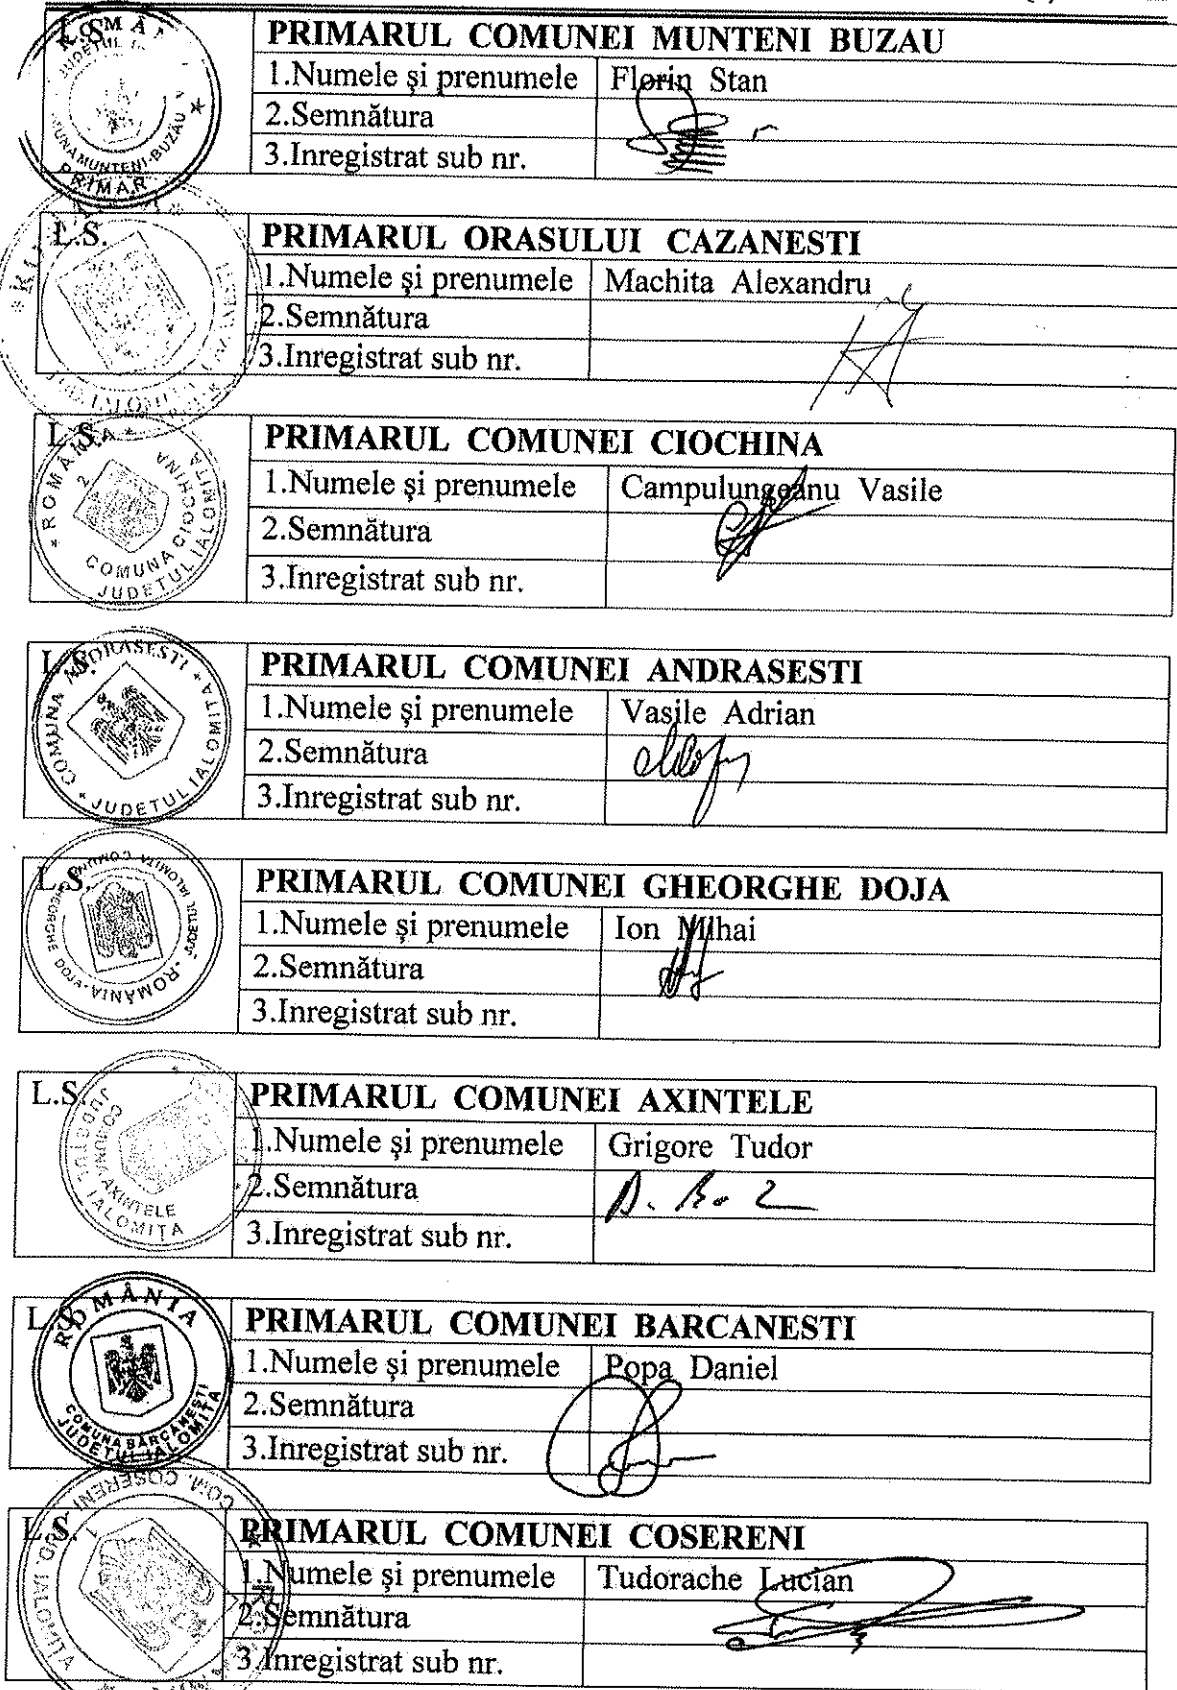 L.S.
PRIMARUL COMUNEI MUNTENI BUZAU
1.Numele şi prenumele Florin Stan
2.Semnătura
3.Inregistrat sub nr.
PRIMAR
L.S.
PRIMARUL ORASULUI CAZANESTI
1.Numele şi prenumele Machita Alexandru
2.Semnătura
3.Inregistrat sub nr.
L.S.
PRIMARUL COMUNEI CIOCHINA
1.Numele şi prenumele Campulungeanu Vasile
2.Semnătura
3.Inregistrat sub nr.
* ROMÂNIA *
2
COMUNA CIOCHINA
JUDETUL IALOMITA
L.S.
PRIMARUL COMUNEI ANDRASESTI
1.Numele şi prenumele Vasile Adrian
2.Semnătura
3.Inregistrat sub nr.
COMUNA ANDRASESTI
* JUDETUL IALOMITA *
L.S.
PRIMARUL COMUNEI GHEORGHE DOJA
1.Numele şi prenumele Ion Mihai
2.Semnătura
3.Inregistrat sub nr.
COMUNA GHEORGHE DOJA
JUDETUL IALOMITA
ROMÂNIA
L.S.
PRIMARUL COMUNEI AXINTELE
1.Numele şi prenumele Grigore Tudor
2.Semnătura
3.Inregistrat sub nr.
JUDETUL IALOMIȚA
COMUNA AXINTELE
L.S.
PRIMARUL COMUNEI BARCANESTI
1.Numele şi prenumele Popa Daniel
2.Semnătura
3.Inregistrat sub nr.
ROMÂNIA
COMUNA BĂRCĂNEȘTI
JUDEȚUL IALOMIȚA
L.S.
PRIMARUL COMUNEI COSERENI
1.Numele şi prenumele Tudorache Lucian
2.Semnătura
3.Inregistrat sub nr.
COM. COSERENI JUD. IALOMITA